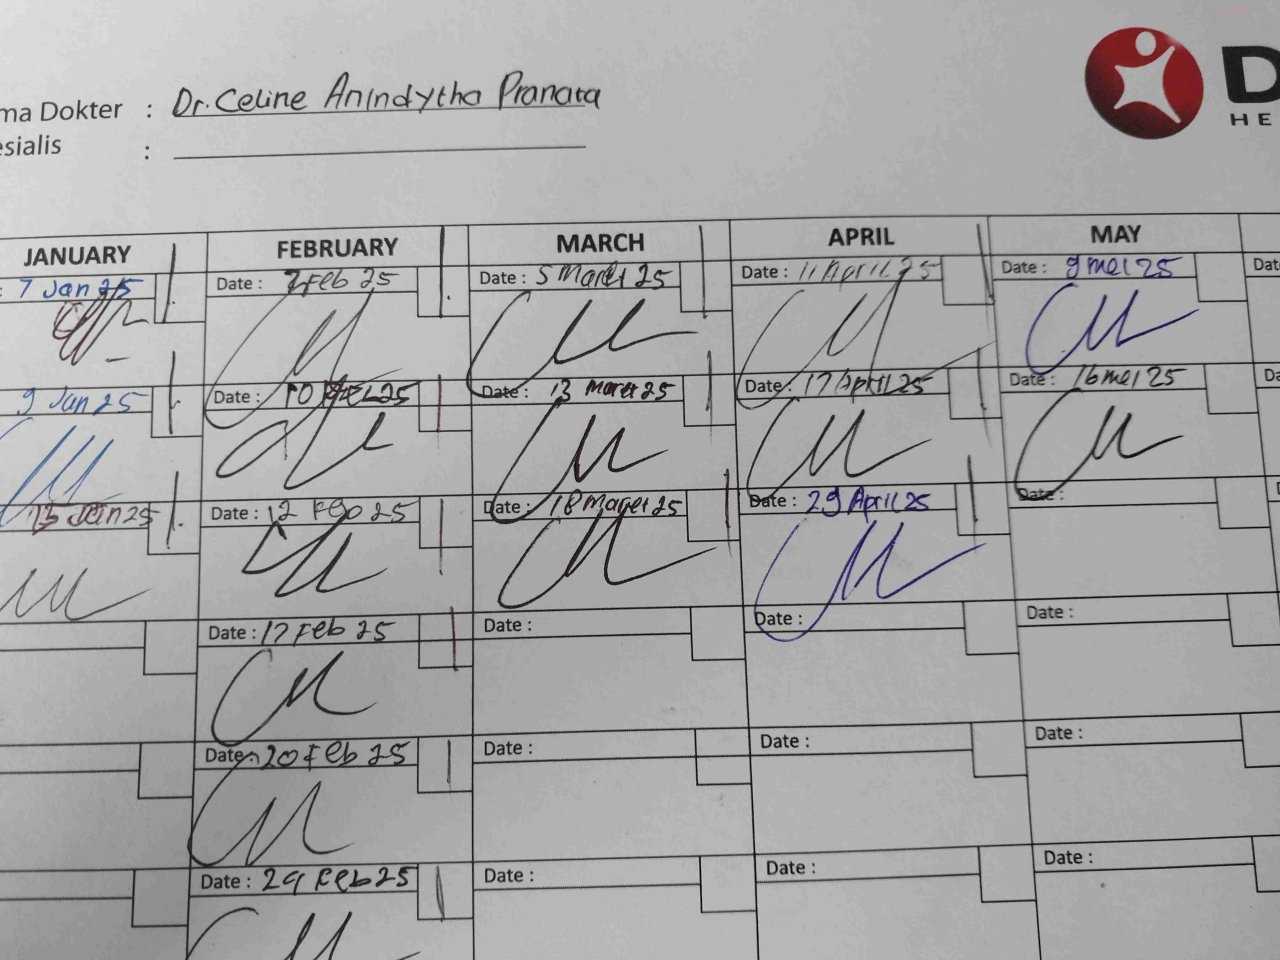 ma Dokter : Dr. Celine Anindytha Pranata
esialis :
D
HE
JANUARY FEBRUARY MARCH APRIL MAY
: 7 Jan 25 Date : 7 Feb 25 Date : 5 Maret 25 Date : 11 April 25 Date : 9 mei 25 Dat
9 Jan 25 Date : 10 25 Date : 13 Maret 25 Date : 17 April 25 Date : 16 mei 25 Da
13 Jan 25 Date : 12 Feb 25 Date : 18 Maret 25 Date : 29 April 25 Date :
Date : 17 Feb 25 Date : Date : Date :
Date : 20 Feb 25 Date : Date : Date :
Date : Feb 25 Date : Date : Date :